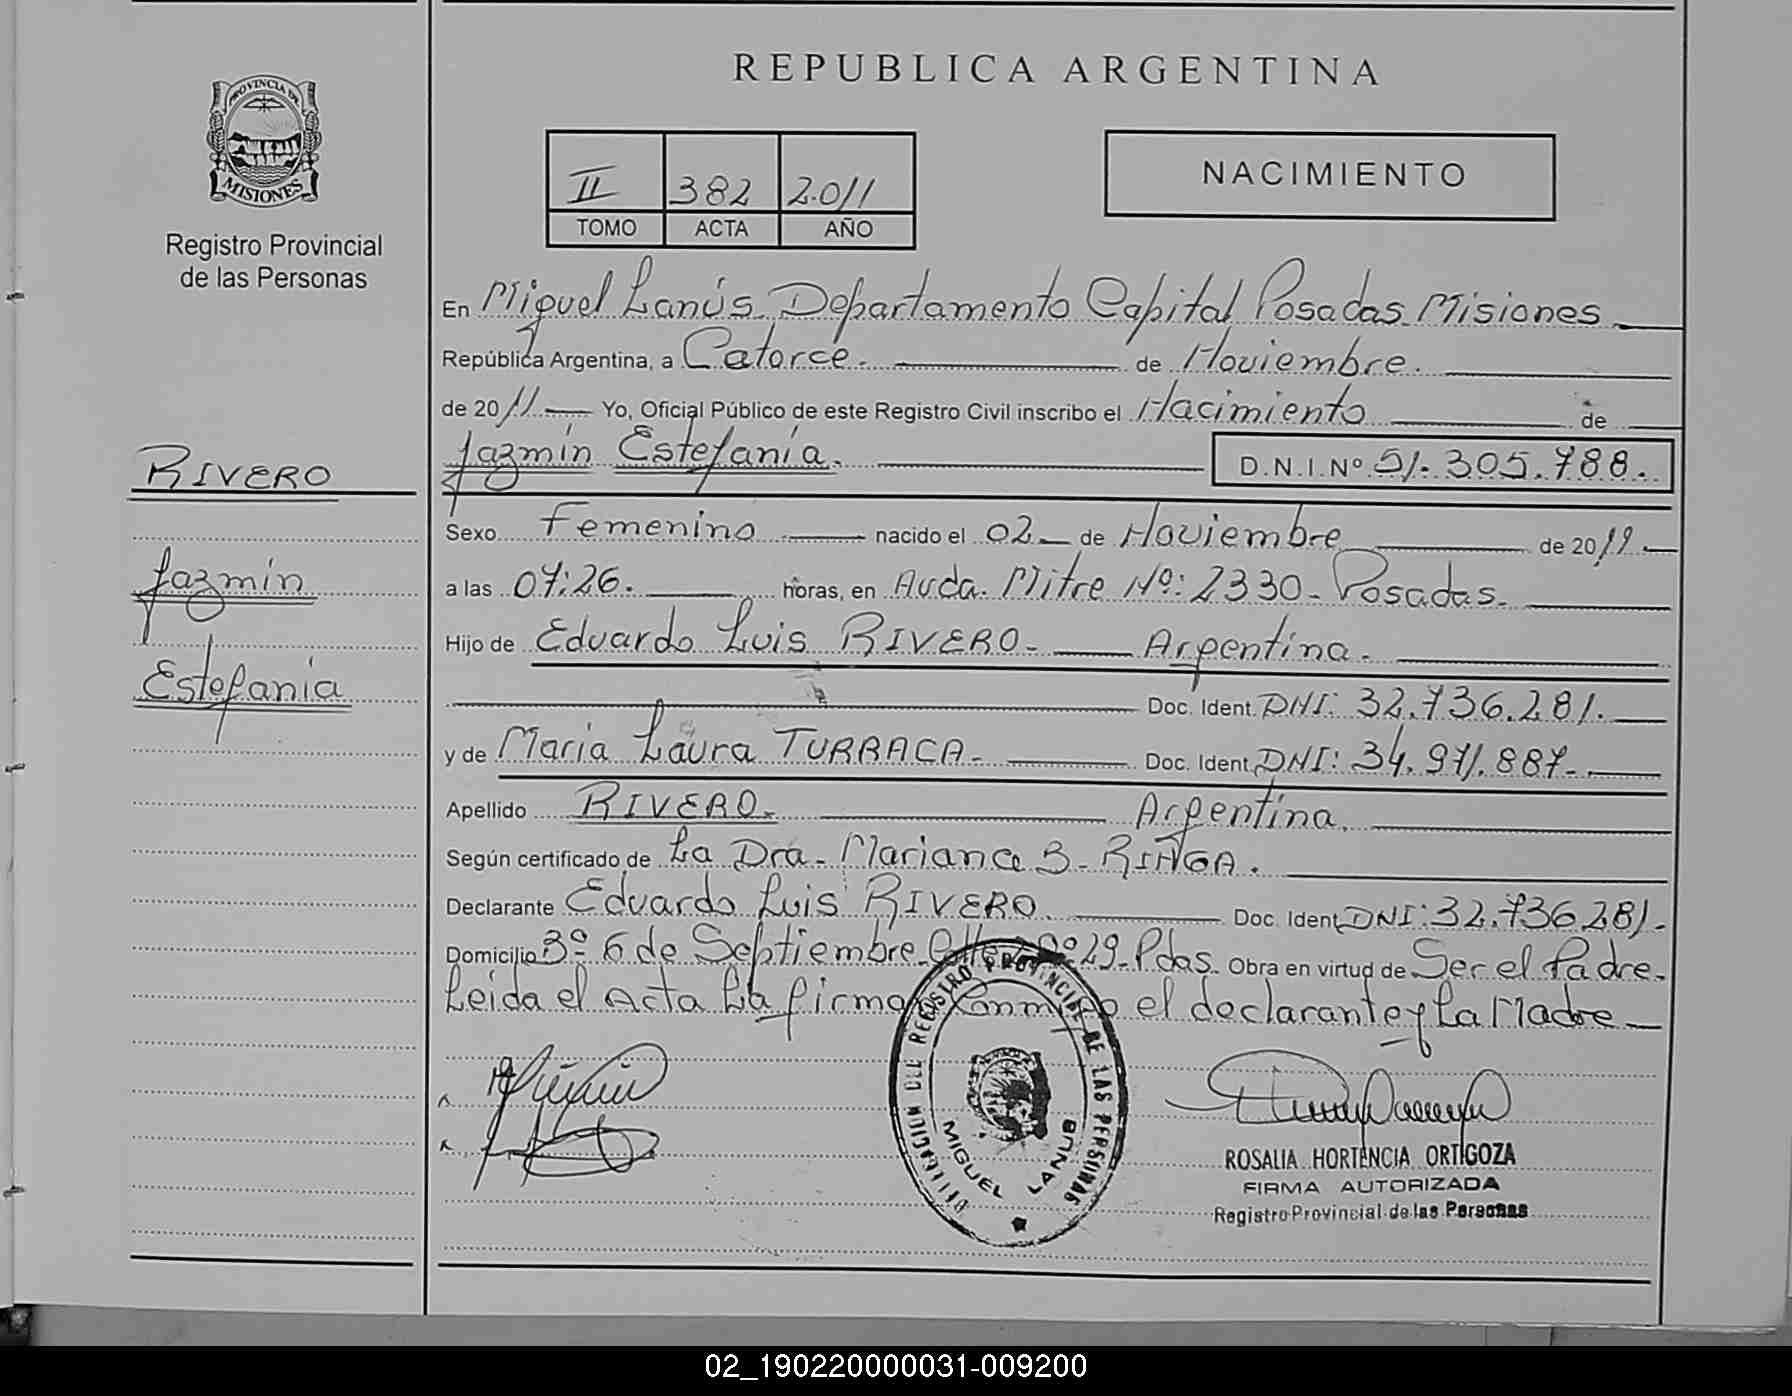 REPUBLICA ARGENTINA
PROVINCIA DE
MISIONES
Registro Provincial
de las Personas
II 382 2.011
TOMO ACTA AÑO
NACIMIENTO
En Miguel Lanús. Departamento Capital Posadas Misiones
República Argentina, a Catorce. de Noviembre.
de 2011 Yo, Oficial Público de este Registro Civil inscribo el Nacimiento de
Jazmín Estefanía. D.N.I.Nº 51.305.788.
RIVERO
Jazmín
Estefanía
Sexo Femenino nacido el 02 de Noviembre de 2011
a las 07:26. horas, en Avda. Mitre Nº: 2330 - Posadas.
Hijo de Eduardo Luis RIVERO - Argentina.
Doc. Ident. DNI: 32.736.281.
y de María Laura TURRACA - Doc. Ident. DNI: 34.971.887.
Apellido RIVERO. Argentina.
Según certificado de La Dra. Mariana B. RINGA.
Declarante Eduardo Luis RIVERO Doc. Ident. DNI: 32.736.281.
Domicilio Bº 6 de Septiembre Nº 29 - Pdas. Obra en virtud de Ser el Padre.
Leída el Acta La firma Conmigo el declarante y La Madre
DELEGACION DEL REGISTRO PROVINCIAL DE LAS PERSONAS
MIGUEL LANUS
ROSALIA HORTENCIA ORTIGOZA
FIRMA AUTORIZADA
Registro Provincial de las Personas
02_190220000031-009200